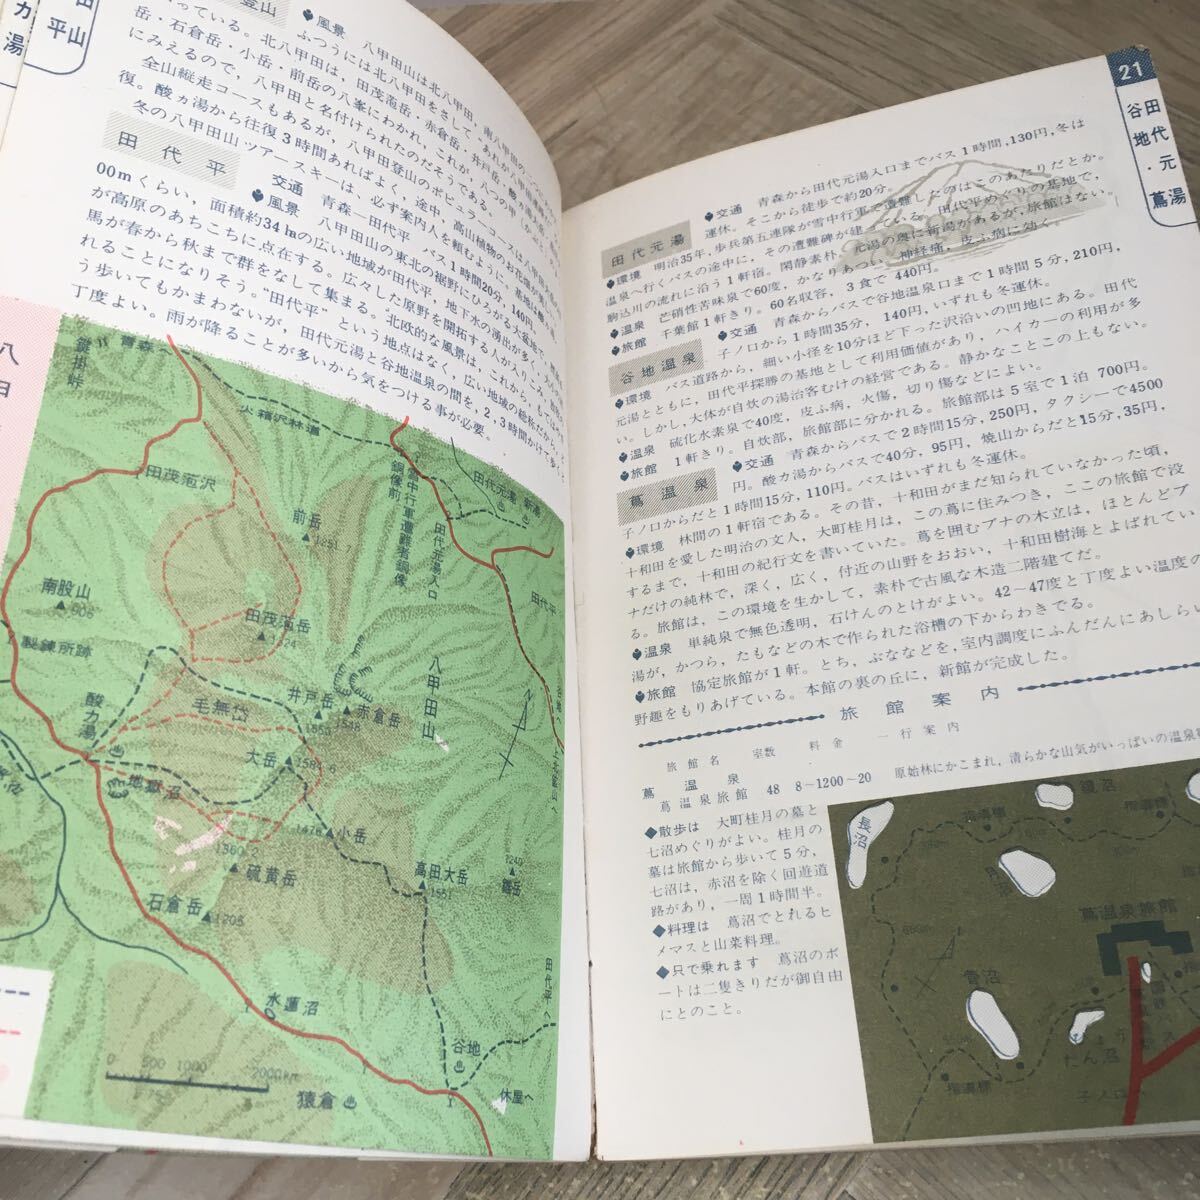 田
山
平
カ
湯
登山
●風景　八甲田山は北八甲田，南八甲田の
ふつうには北八甲田をさして，
っている。北八甲田は，田茂萢岳・赤倉岳・井戸岳・
岳・石倉岳・小岳・前岳の八峯にわかれ，これが，八つの甲
にみえるので，八甲田と名付けられたのだそうである。
全山縦走コースもあるが，八甲田登山のポピュラーコースは
復。酸ヵ湯から往復3時間あればよく，途中，高山植物のお花畑が美
冬の八甲田山ツアースキーは，必ず案内人を頼むように。基地は
田代平
●交通　青森―田代平，バス1時間20分，140円。
●風景　八甲田山の東北の裾野にひろがる大盆地で，
00mくらい，面積約34haの広い地域が田代平，地下水の湧出が多く，
が高原のあちこちに点在する。広々した原野を開拓する人が入りこみ，
馬が春から秋まで群をなして集まる。“北欧的な風景は，これから，もては
れることになりそう。“田代平”という地点はなく，広い地域の総称だから，
う歩いてもかまわないが，田代元湯と谷地温泉の間を，2，3時間かけて歩く
丁度よい。雨が降ることが多いから気をつける事が必要。
八
青森へ
鍵掛峠
田茂萢沢
前岳
南股山
906
製錬所跡
田茂萢岳
酸カ湯
毛無岱
井戸岳
赤倉岳
1548
大岳
1584.6
地獄沼
小岳
1478
1360
硫黄岳
石倉岳
1205
高田大岳
1551
1240
雛岳
水蓮沼
八甲田山
田代元湯
新湯
田代元湯入口
雪中行軍遭難者銅像
銅像前
田代平
谷地へ
田代平へ
谷地
猿倉
休屋へ
0 500 1000 2000m
21
田代元湯
谷地・蔦
田代元湯
●交通　青森から田代元湯入口までバス1時間，130円，冬は
運休。そこから徒歩で約20分。
●環境　明治35年，歩兵第五連隊が雪中行軍で遭難したのはこのあたりだとか。
温泉へ行くバスの途中に，その遭難碑が建っている。田代平めぐりの基地で，
駒込川の流れに沿う1軒宿。閑静素朴。元湯の奥に新湯があるが，旅館はない。
●温泉　芒硝性苦味泉で60度，かなりあつい。神経痛，皮ふ病に効く。
●旅館　千葉館1軒きり。60名収容，3食で440円。
谷地温泉
●交通　青森からバスで谷地温泉口まで1時間5分，210円，
子ノ口から1時間35分，140円，いずれも冬運休。
●環境　バス道路から，細い小径を10分ほど下った沢沿いの凹地にある。田代
元湯とともに，田代平探勝の基地として利用価値があり，ハイカーの利用が多
い。しかし，大体が自炊の湯治客むけの経営である。静かなことこの上もない。
●温泉　硫化水素泉で40度，皮ふ病，火傷，切り傷などによい。
●旅館　1軒きり。自炊部，旅館部に分かれる。旅館部は5室で1泊700円。
蔦温泉
●交通　青森からバスで2時間15分，250円，タクシーで4500
円。酸カ湯からバスで40分，95円，焼山からだと15分，35円，
子ノ口からだと1時間15分，110円。バスはいずれも冬運休。
●環境　林間の1軒宿である。その昔，十和田がまだ知られていなかった頃，
十和田を愛した明治の文人，大町桂月は，この蔦に住みつき，ここの旅館で没
するまで，十和田の紀行文を書いていた。蔦を囲むブナの木立は，ほとんどブ
ナだけの純林で，深く，広く，付近の山野をおおい，十和田樹海とよばれてい
る。旅館は，この環境を生かして，素朴で古風な木造二階建てだ。
●温泉　単純泉で無色透明，石けんのとけがよい。42〜47度と丁度よい温度の
湯が，かつら，たもなどの木で作られた浴槽の下からわきでる。
●旅館　協定旅館が1軒。とち，ぶななどを，室内調度にふんだんにあしら
野趣をもりあげている。本館の裏の丘に，新館が完成した。
旅館案内
旅館名　室数　料金　一行案内
蔦温泉
蔦温泉旅館　48　8〜1200〜20　原始林にかこまれ，清らかな山気がいっぱいの温泉
◆散歩は　大町桂月の墓と
七沼めぐりがよい。桂月の
墓は旅館から歩いて5分，
七沼は，赤沼を除く回遊道
路があり，一周1時間半。
◆料理は　蔦沼でとれるヒ
メマスと山菜料理。
◆只で乗れます　蔦沼のボ
ートは二隻きりだが御自由
にとのこと。
長沼
鏡沼
月沼
指導標
蔦温泉旅館
菅沼
指導標
ひょうたん沼
子ノ口へ